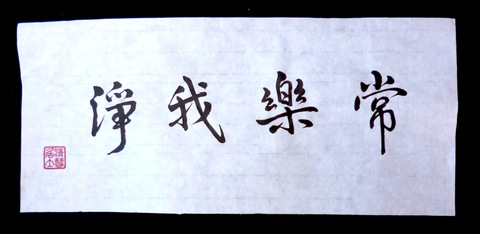 常樂我淨